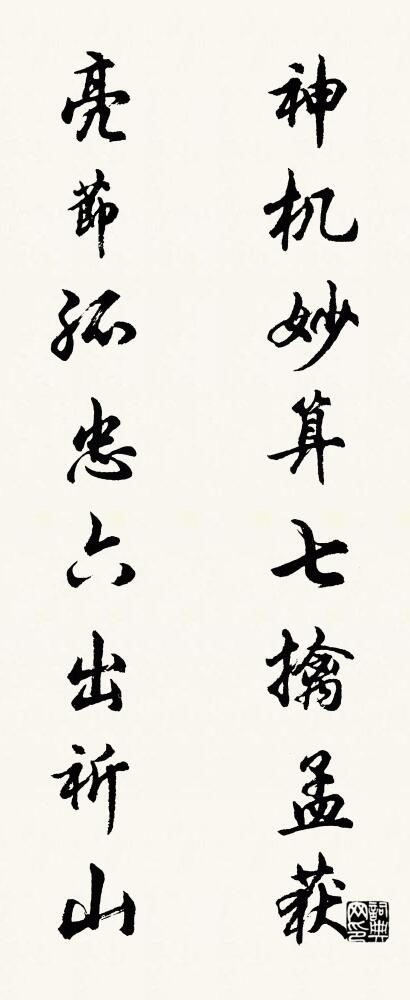 神机妙算七擒孟获
亮節孤忠六出祈山
詞典网印